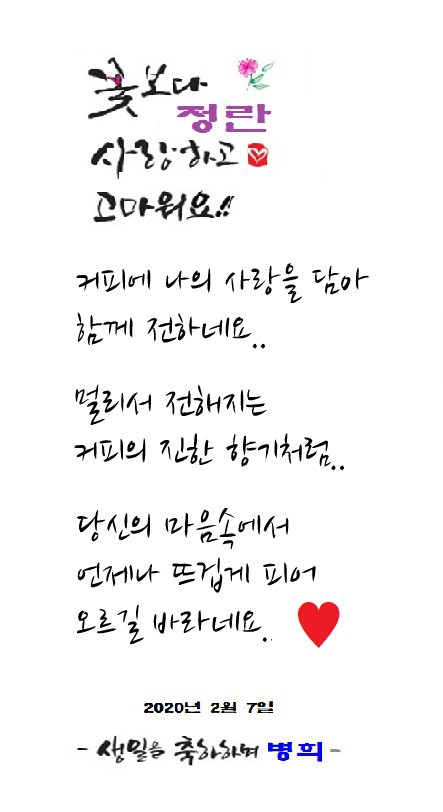 꽃보다
정란
사랑하고
고마워요!!
커피에 나의 사랑을 담아
함께 전하네요..
멀리서 전해지는
커피의 진한 향기처럼..
당신의 마음속에서
언제나 뜨겁게 피어
오르길 바라네요..
2020년 2월 7일
- 생일을 축하하며 병희 -